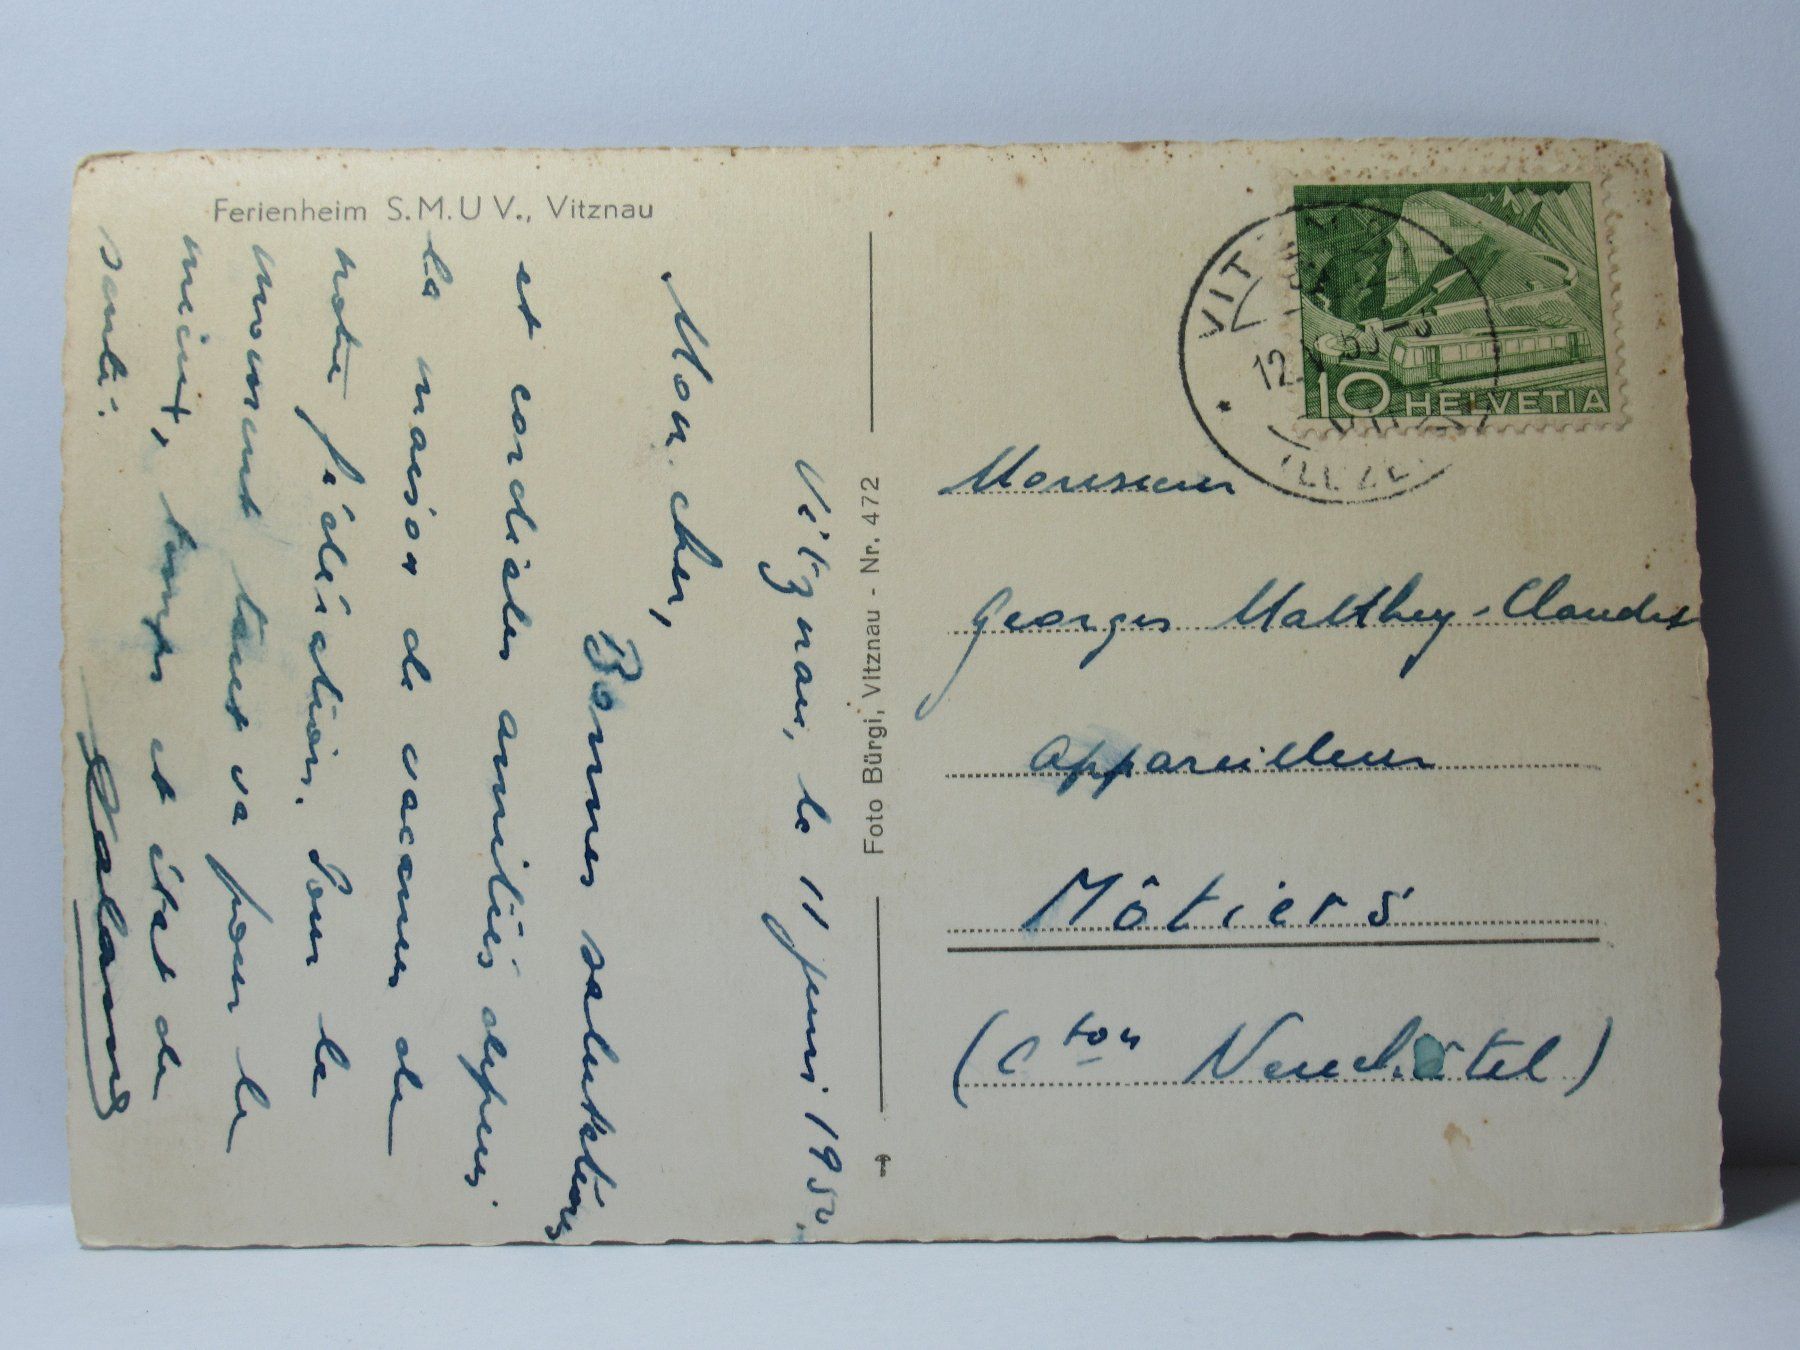 Ferienheim S.M.U V., Vitznau
Vitznau, le 11 juin 1950.
Mon cher,
Bonnes salutations
et cordiales amitiés depuis
la maison de vacances de
notre fédération. Pour le
moment tout va pour le
mieux, temps et état de
santé.
Foto Bürgi, Vitznau - Nr. 472
VITZNAU
12.
(LUZERN)
10 HELVETIA
Monsieur
Georges Matthey-Claudet
appareilleur
Môtiers
(Cton Neuchâtel)